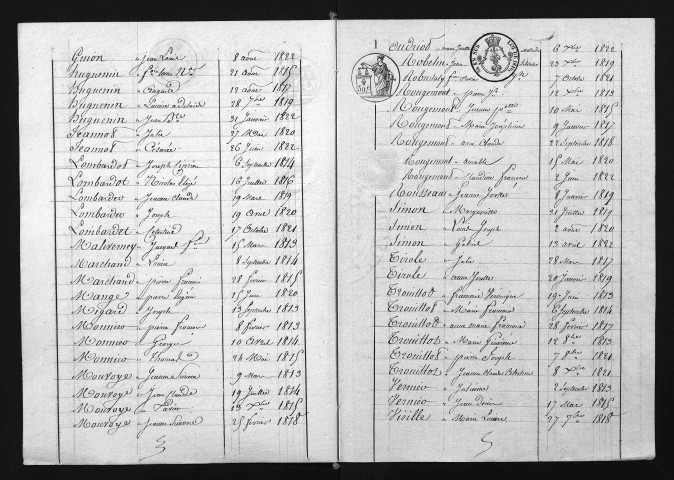 Guion Jean Louis 8 août 1822
huguenin 21 août 1815
huguenin 12 août 1817
huguenin Louise adelaide 28 7bre 1819
huguenin Jean Bte 31 Janvier 1822
Jeannot Julie 27 Mai 1820
Jeannot Césarie 26 Juin 1822
Lombardot Joseph 6 Septembre 1814
Lombardot Nicolas 16 Juillet 1816
Lombardot Jeanne Claude 19 Mars 1819
Lombardot Joseph 19 avril 1820
Lombardot Celestine 17 Octobre 1821
Maliverney Jacques 15 Mars 1813
Marchand Louise 8 Septembre 1814
Marchand pierre francois 28 février 1815
Mange pierre 15 Juin 1820
Migard Joseph 13 Septembre 1813
Monnier pierre francois 8 février 1813
Monnier George 10 avril 1814
Monnier Thomas 24 Mai 1815
Mouroye Jeanne Simone 9 Mars 1813
Mouroye Jean Claude 19 Juillet 1814
Mouroye 13 Xbre 1815
Mouroye Jeanne Simone 25 février 1818
Oudriot 6 Xbre 1822
Robelin Jean 23 Xbre 1819
7 Octobre 1821
Rougemont pierre 12 Xbre 1813
Rougemont Jeanne 10 Mai 1815
Rougemont Marie Josephine 9 Janvier 1817
Rougemont Claude 22 Septembre 1818
Rougemont 15 Mai 1820
Rougemont Claudine francoise 2 Juin 1822
Rousseau Jeanne 8 Janvier 1819
Simon Marguerite 31 Juillet 1819
Simon Louis Joseph 2 août 1820
Simon Gabriel 13 avril 1822
Tirole Julie 28 Mars 1817
Tirole 20 Janvier 1819
Trouillot francois Veronique 19 Juin 1813
Trouillot Marie francoise 6 Septembre 1814
Trouillot anne marie francoise 28 février 1817
Trouillot Marie 12 8bre 1813
Trouillot pierre Joseph 7 8bre 1821
Trouillot Jeanne Claude Celestine 8 Xbre 1821
Vernier Julienne 2 Septembre 1813
Vernier Jean Denis 17 Mai 1815
Vieille Marie Louise 27 7bre 1818